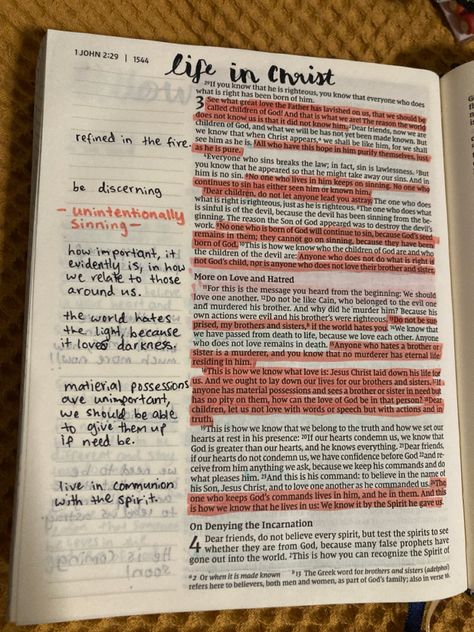 1 JOHN 2:29 | 1544
life in Christ
refined in the fire.
be discerning
- unintentionally
sinning -
how important, it
evidently is, in how
we relate to those
around us.
the world hates
the light, because
it loves darkness.
material possessions
are unimportant,
we should be able
to give them up
if need be.
live in communion
with the spirit.
29If you know that he is righteous, you know that everyone who does
what is right has been born of him.
3 See what great love the Father has lavished on us, that we should be
called children of God! And that is what we are! The reason the world
does not know us is that it did not know him. 2Dear friends, now we are
children of God, and what we will be has not yet been made known. But
we know that when Christ appears,a we shall be like him, for we shall
see him as he is. 3All who have this hope in him purify themselves, just
as he is pure.
4Everyone who sins breaks the law; in fact, sin is lawlessness. 5But
you know that he appeared so that he might take away our sins. And in
him is no sin. 6No one who lives in him keeps on sinning. No one who
continues to sin has either seen him or known him.
7Dear children, do not let anyone lead you astray. The one who does
what is right is righteous, just as he is righteous. 8The one who does what
is sinful is of the devil, because the devil has been sinning from the be-
ginning. The reason the Son of God appeared was to destroy the devil's
work. 9No one who is born of God will continue to sin, because God's seed
remains in them; they cannot go on sinning, because they have been
born of God. 10This is how we know who the children of God are and who
the children of the devil are: Anyone who does not do what is right is not
God's child, nor is anyone who does not love their brother and sister.
More on Love and Hatred
11For this is the message you heard from the beginning: We should
love one another. 12Do not be like Cain, who belonged to the evil one
and murdered his brother. And why did he murder him? Because his
own actions were evil and his brother's were righteous. 13Do not be sur-
prised, my brothers and sisters,b if the world hates you. 14We know that
we have passed from death to life, because we love each other. Anyone
who does not love remains in death. 15Anyone who hates a brother or
sister is a murderer, and you know that no murderer has eternal life
residing in him.
16This is how we know what love is: Jesus Christ laid down his life for
us. And we ought to lay down our lives for our brothers and sisters. 17If
anyone has material possessions and sees a brother or sister in need but
has no pity on them, how can the love of God be in that person? 18Dear
children, let us not love with words or speech but with actions and in
truth.
19This is how we know that we belong to the truth and how we set our
hearts at rest in his presence: 20If our hearts condemn us, we know that
God is greater than our hearts, and he knows everything. 21Dear friends,
if our hearts do not condemn us, we have confidence before God 22and re-
ceive from him anything we ask, because we keep his commands and do
what pleases him. 23And this is his command: to believe in the name of
his Son, Jesus Christ, and to love one another as he commanded us. 24The
one who keeps God's commands lives in him, and he in them. And this
is how we know that he lives in us: We know it by the Spirit he gave us.
On Denying the Incarnation
4 Dear friends, do not believe every spirit, but test the spirits to see
whether they are from God, because many false prophets have
gone out into the world. 2This is how you can recognize the Spirit of
a2 Or when it is made known b13 The Greek word for brothers and sisters (adelphoi)
refers here to believers, both men and women, as part of God's family; also in verse 16.